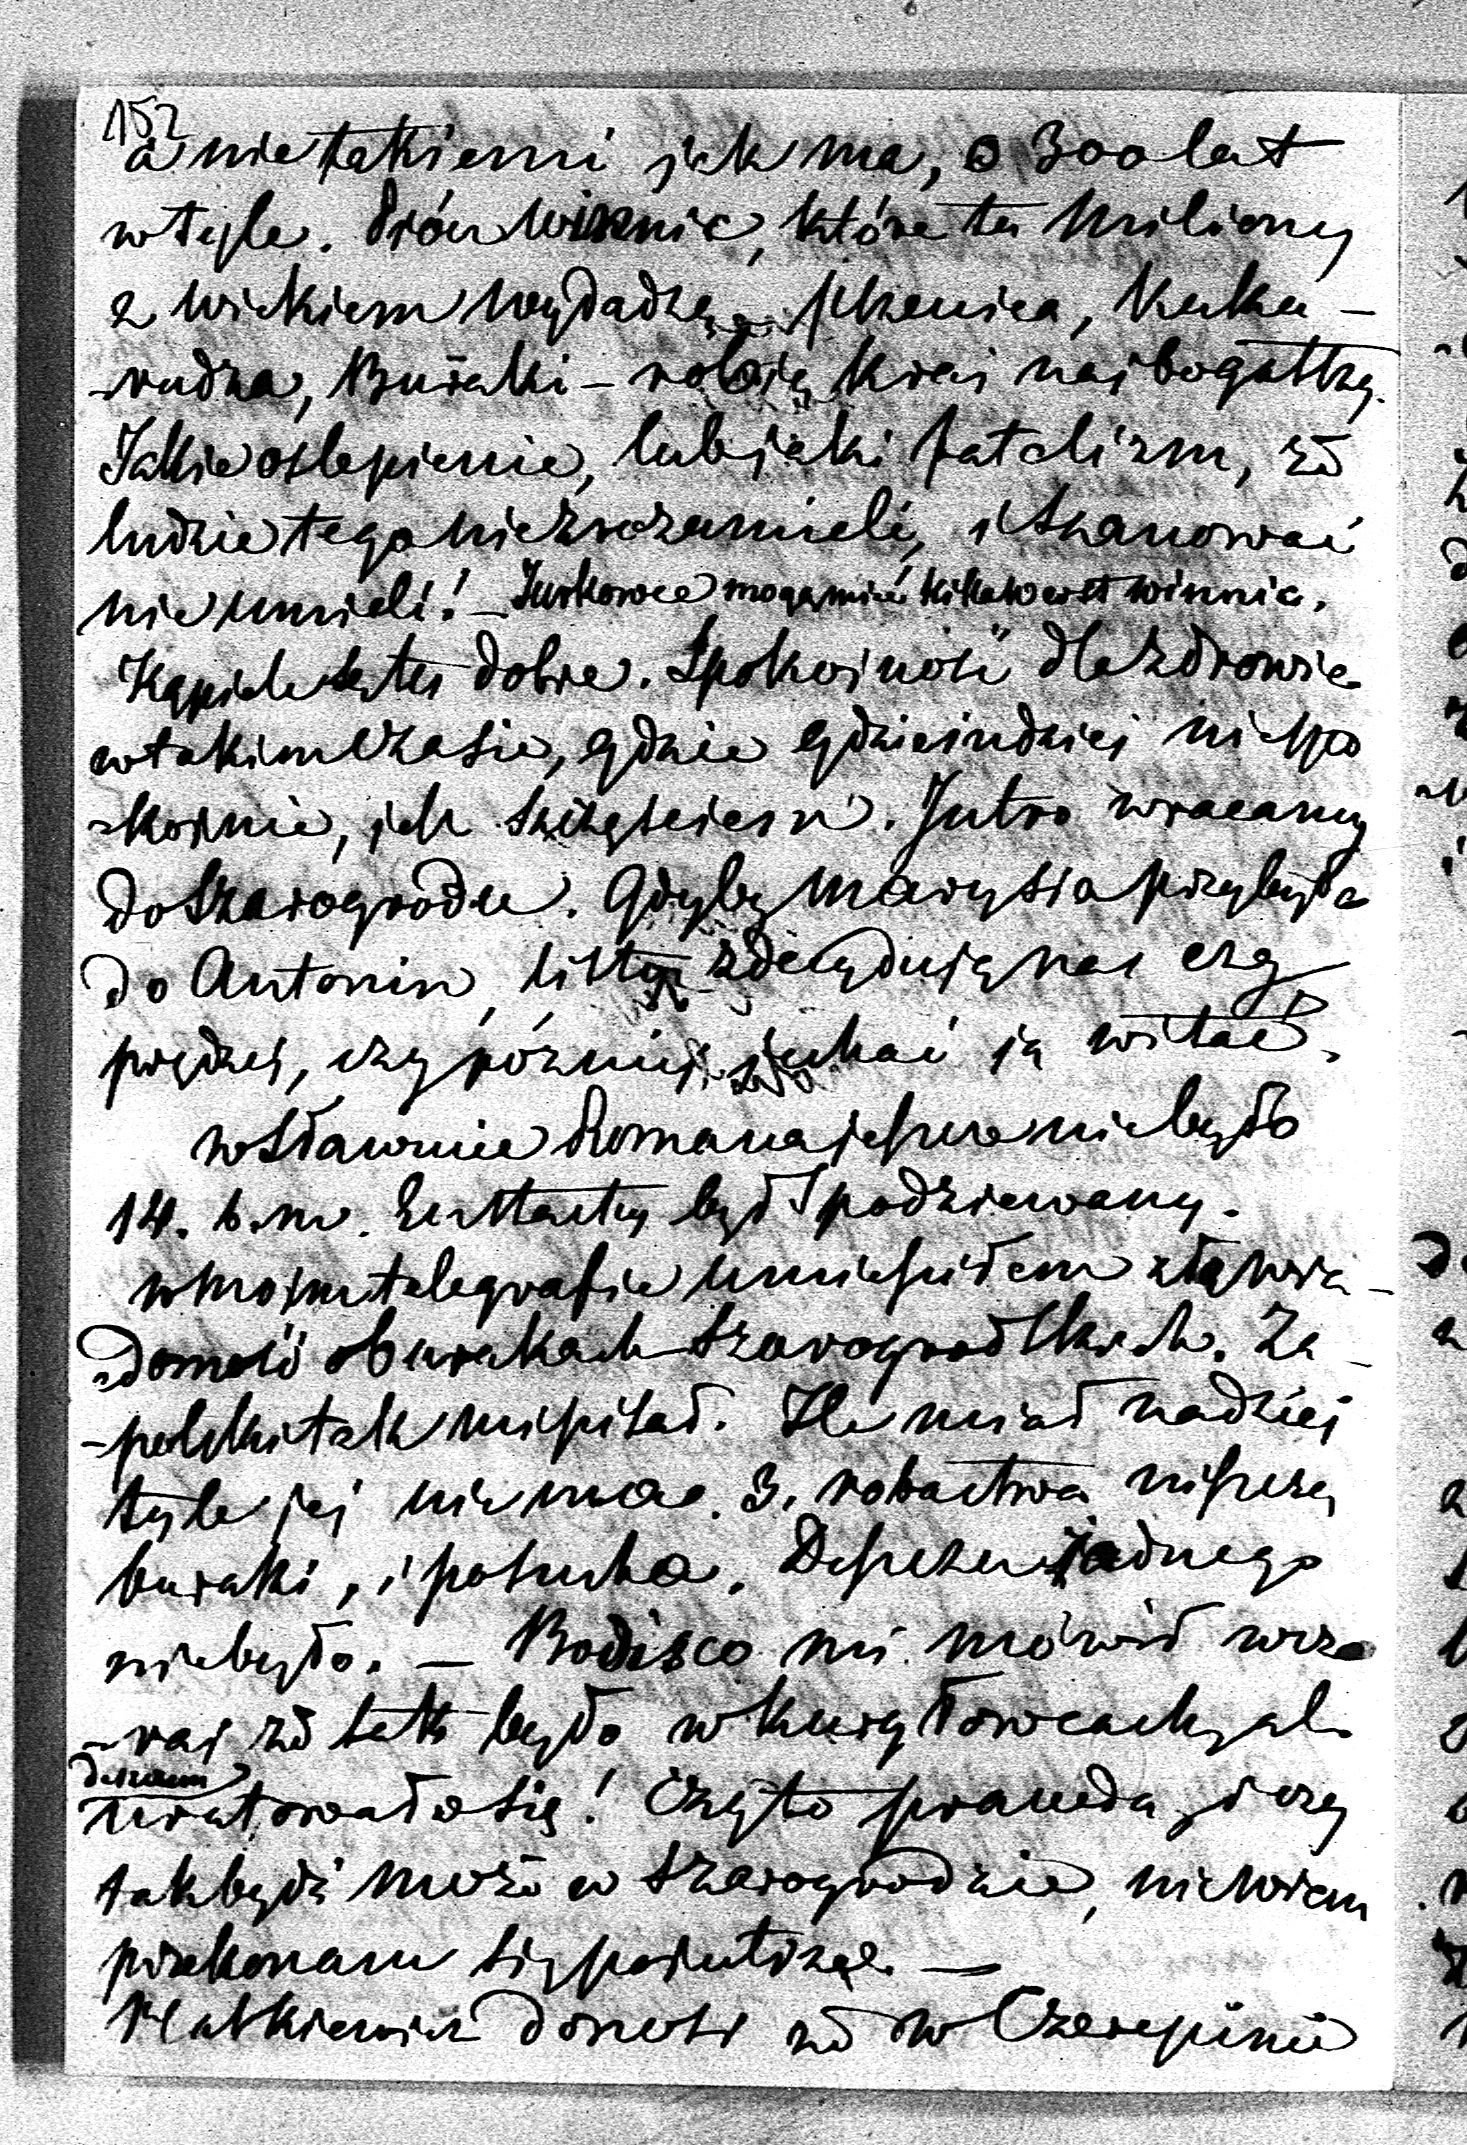 152
a nie takiemi jak ma, o 300 lat
w tyle. Prócz winnic, które tu miliony
z wiekiem wydadzą, pszenica, kuku-
-rudza, Buraki – robią kraj najbogatszy.
Jakie oslepienie, lub jaki fatalizm, że
ludzie tego nie zrozumieli, i szanować
nie umieli! – Jurkowce mogą mieć kilka werst winnic.
Kąpiele są tu dobre. Spokojność dla zdrowia
w takim czasie, gdzie gdzieindziej niespo
-kojnie, jest szczęściem. Jutro wracamy
do Szarogrodu. Gdyby Marysia przybyła
do Antonin, listy zdecydują nas czy
prędzej, czy później jechać ją witać.
w Sławucie Romana jeszcze nie było
14. b.m. Eustachy był spodziewany.
w moim telegrafie umieściłem złą wia-
-domość o burakach Szarogrodskich. Za-
-polski tak mi pisał. Ile miał nadziej
tyle jej nie ma. 3. robactwa niszczy
buraki, i posucha. Deszczu żadnego
nie było. – Bodisco mi mówił wczo
-raj że tak było w Kuryłowcach, ale
deszczem
uratowało się! Czy to prawda, i czy
tak być może w Szarogrodzie, nie wiem
przekonam się pojutrze. –
donosi że w Czerepinie